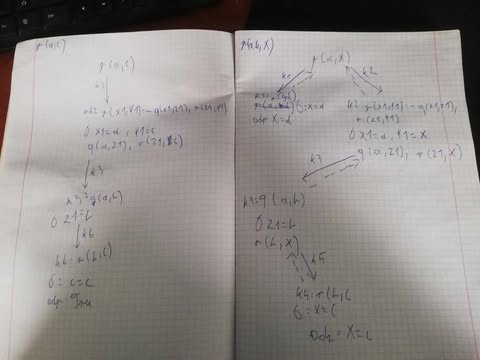 p(a,c)
p(a,c)
k2
k2 p(x1,y1):- q(x1,z1), r(z1,y1)
θ x1=a, y1=c
q(a,z1), r(z1,c)
k3
k3: q(a,b)
θ z1=b
k6
k6: r(b,c)
θ: c=c
odp:
p(a,X)
p(a,X)
k1
k2
odp X=d
k2 p(x1,y1):- q(x1,z1),
r(z1,y1)
θ x1=a, y1=X
q(a,z1), r(z1,X)
k3
k3: q(a,b)
θ z1=b
r(b,X)
k5
k5: r(b,c
θ: X=c
odp = X=c